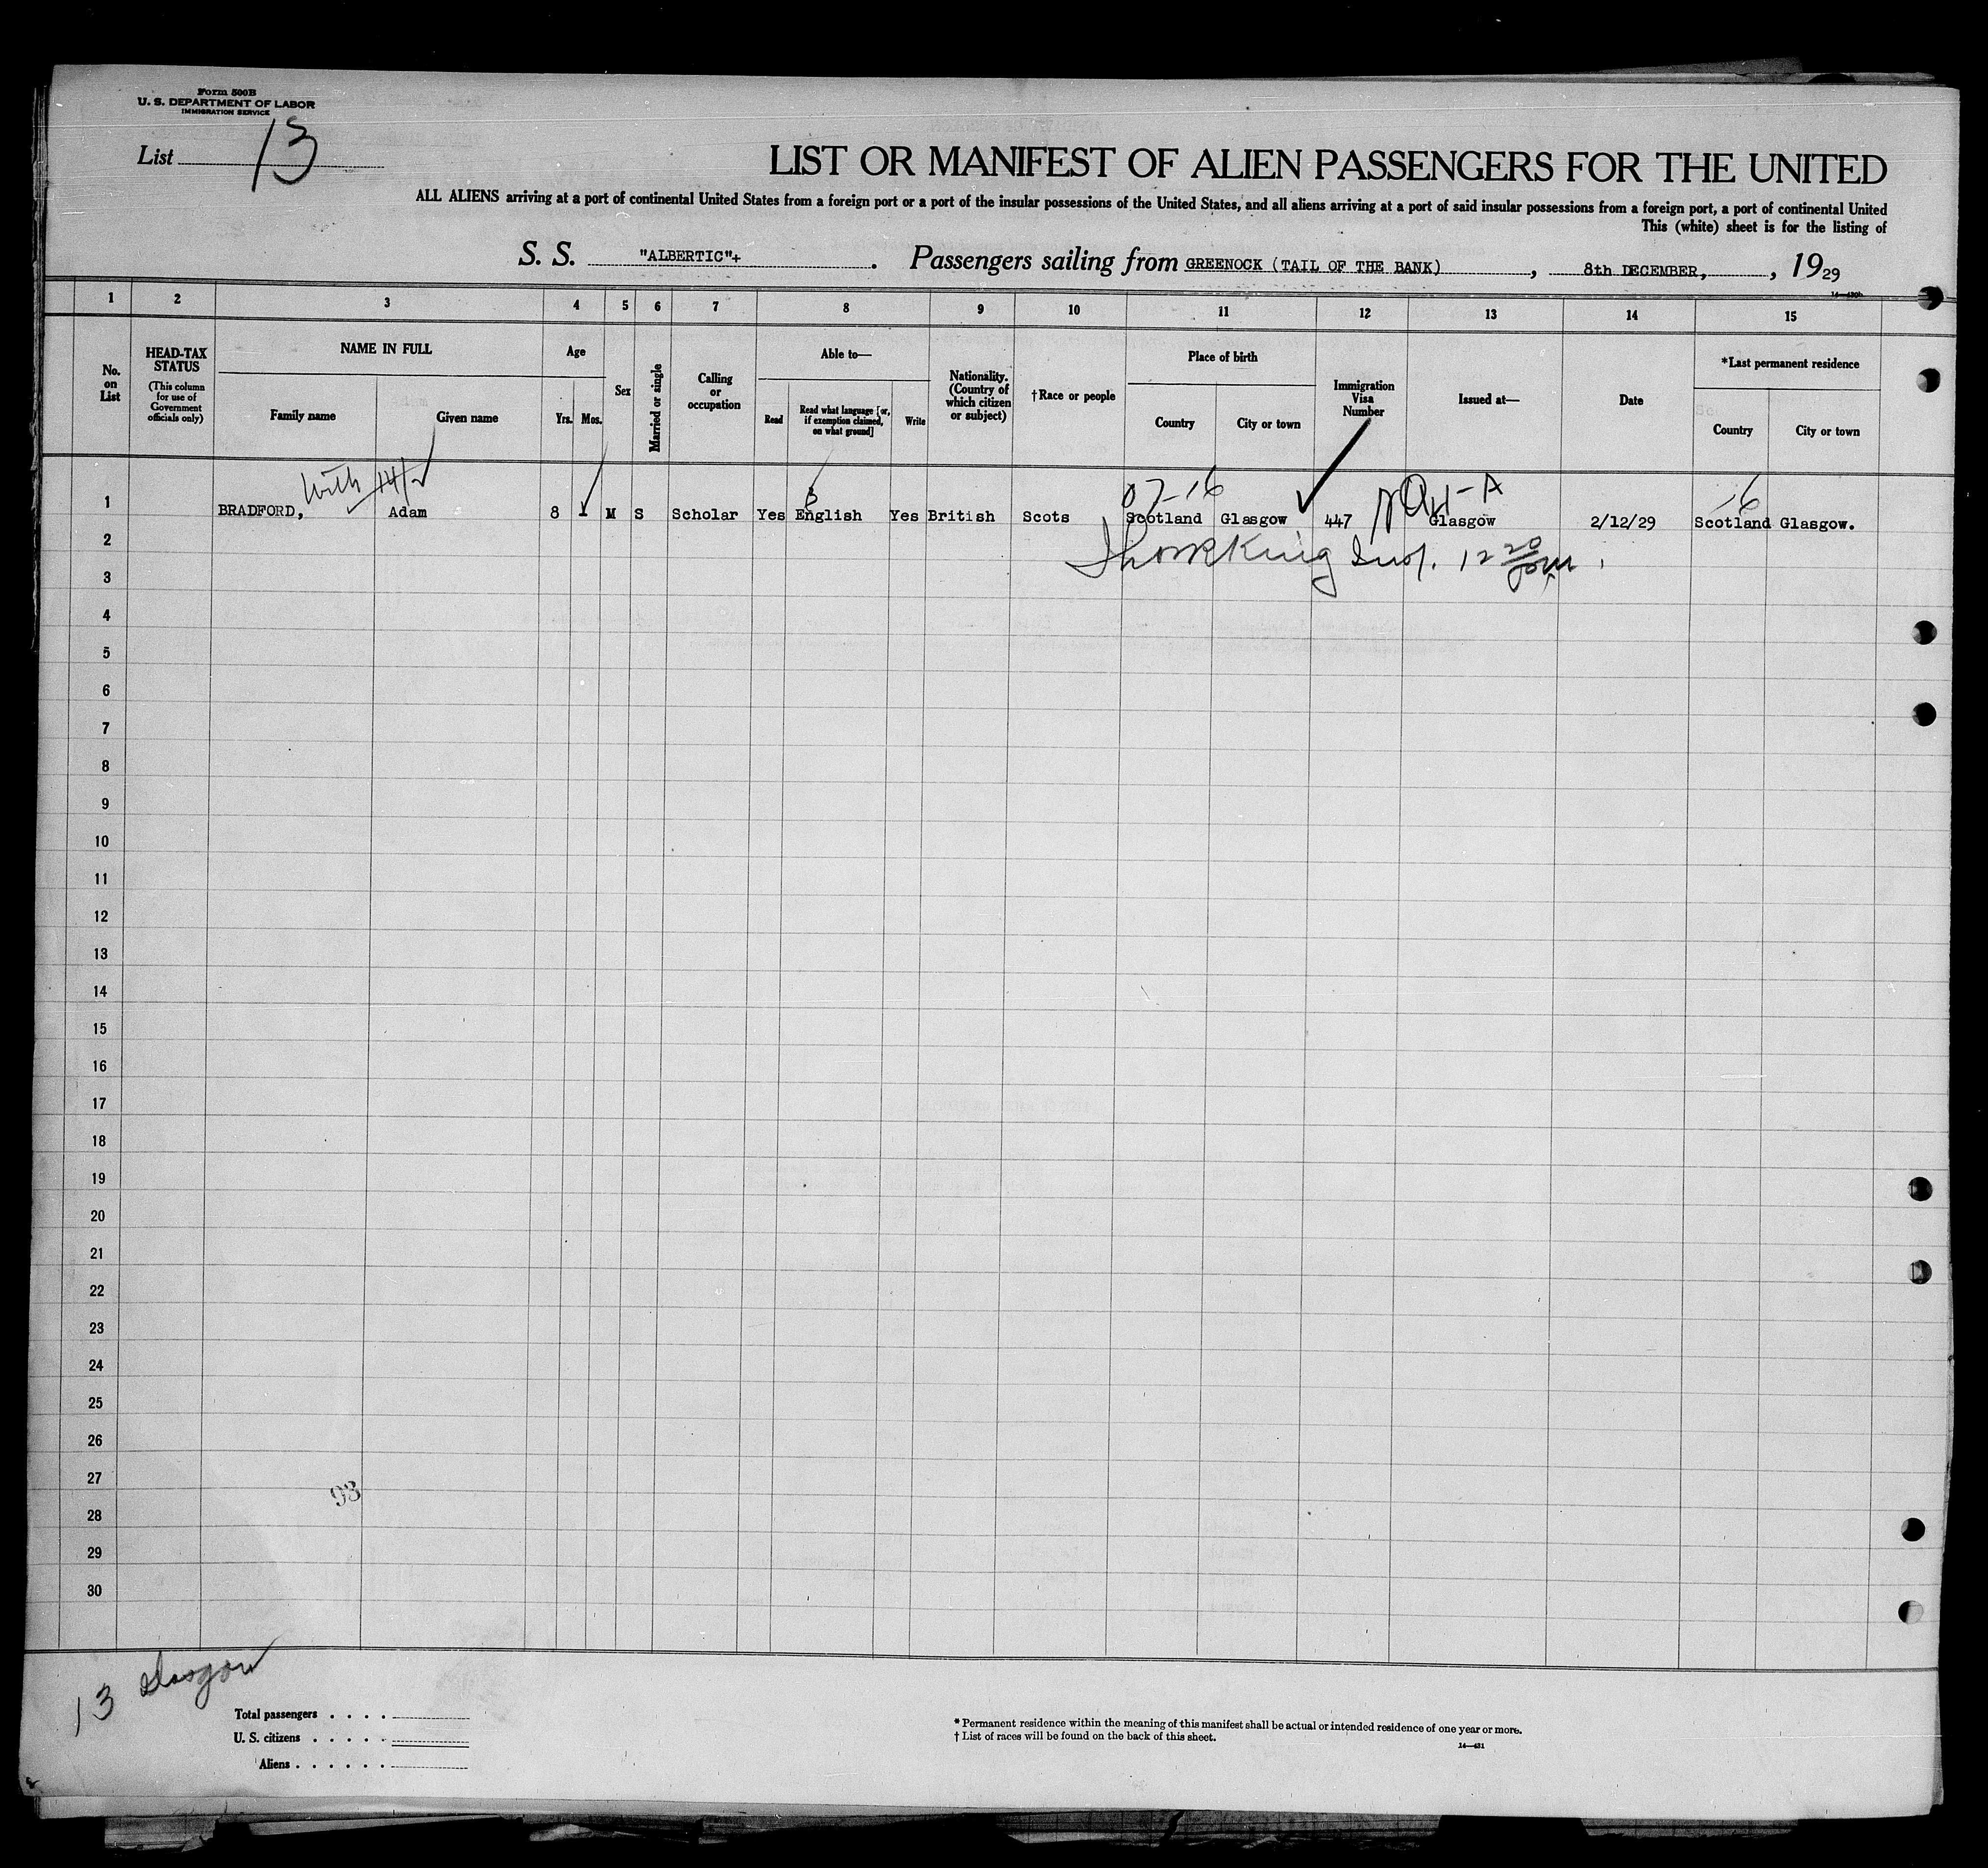 Form 500B
U. S. DEPARTMENT OF LABOR
IMMIGRATION SERVICE
List 13
LIST OR MANIFEST OF ALIEN PASSENGERS FOR THE UNITED
ALL ALIENS arriving at a port of continental United States from a foreign port or a port of the insular possessions of the United States, and all aliens arriving at a port of said insular possessions from a foreign port, a port of continental United
This (white) sheet is for the listing of
S. S. "ALBERTIC"+ . Passengers sailing from GREENOCK (TAIL OF THE BANK) , 8th DECEMBER, , 1929
14—430b
1 2 3 4 5 6 7 8 9 10 11 12 13 14 15
No. on List
HEAD-TAX STATUS
(This column for use of Government officials only)
NAME IN FULL
Family name
Given name
Age
Yrs.
Mos.
Sex
Married or single
Calling or occupation
Able to—
Read
Read what language [or, if exemption claimed, on what ground]
Write
Nationality. (Country of which citizen or subject)
†Race or people
Place of birth
Country
City or town
Immigration Visa Number
Issued at—
Date
*Last permanent residence
Country
City or town
With 14/2
07-16
16
1 BRADFORD, Adam 8 1 M S Scholar Yes English Yes British Scots Scotland Glasgow 447 Glasgow 2/12/29 Scotland Glasgow.
2
King Insp. 12 20 pm.
3
4
5
6
7
8
9
10
11
12
13
14
15
16
17
18
19
20
21
22
23
24
25
26
27
93
28
29
30
13 Glasgow
Total passengers . . . .
U. S. citizens . . . . .
Aliens . . . . . .
* Permanent residence within the meaning of this manifest shall be actual or intended residence of one year or more.
† List of races will be found on the back of this sheet.
14—431